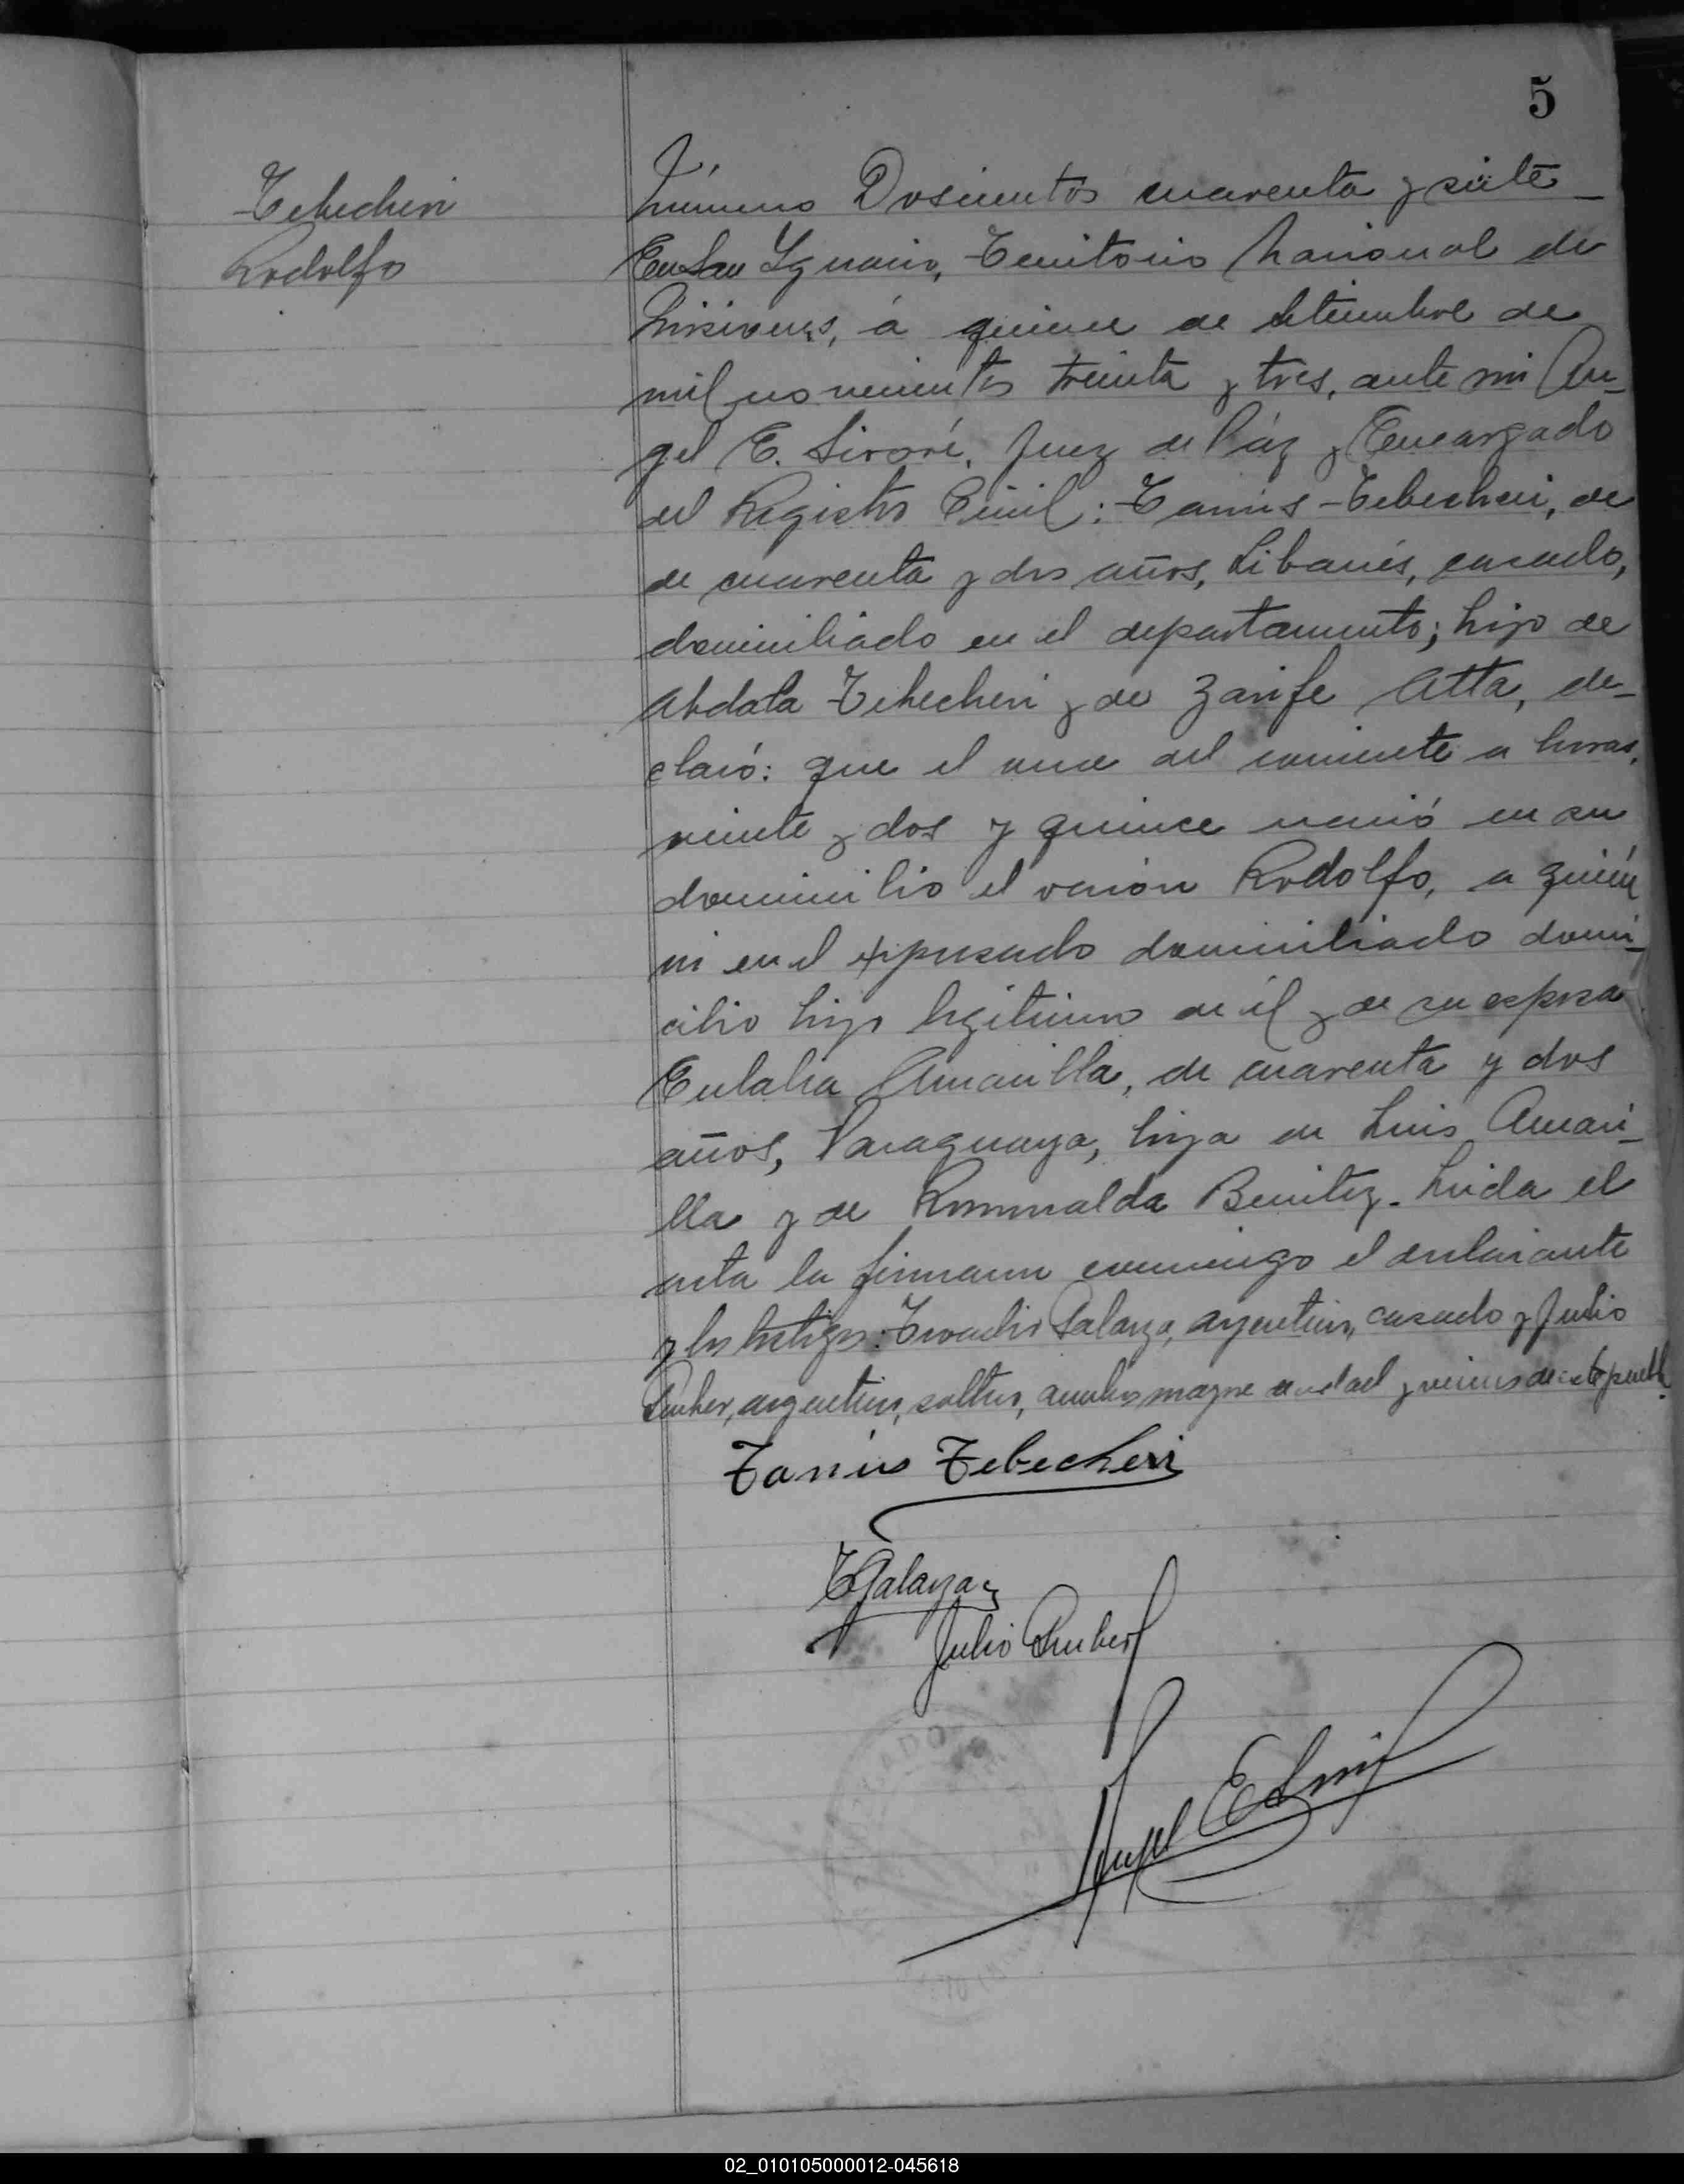 5
Tebecheri
Rodolfo
Número Dosientos cuarenta y siete
En San Ygnacio, Territorio Nacional de
Misiones, á quince de Setiembre de
mil novecientos treinta y tres, ante mi An-
gel E. Juez de Páz y Encargado
del Registro Civil: Tanús Tebecheri, de
de cuarenta y dos años, Libanés, casado,
domiciliado en el departamento; hijo de
Abdala Tebecheri y de Zarife Atta, de-
claró: que el once del corriente a horas,
veinte y dos y quince nació en su
domicilio el varón Rodolfo, a quién
vi en el expresado domiciliado domi-
cilio hijo legitimo de él y de su esposa
Eulalia Amarilla, de cuarenta y dos
años, Paraguaya, hija de Luis Amari-
lla y de Romualda Benitez. Leida el
acta la firmaron conmigo el declarante
y los testigos: Galarza, argentino, casado y Julio
argentino, soltero, ambos mayor de edad y vecinos de este pueblo.
Tanús Tebecheri
T Galarza
Julio
Angel E
02_010105000012-045618